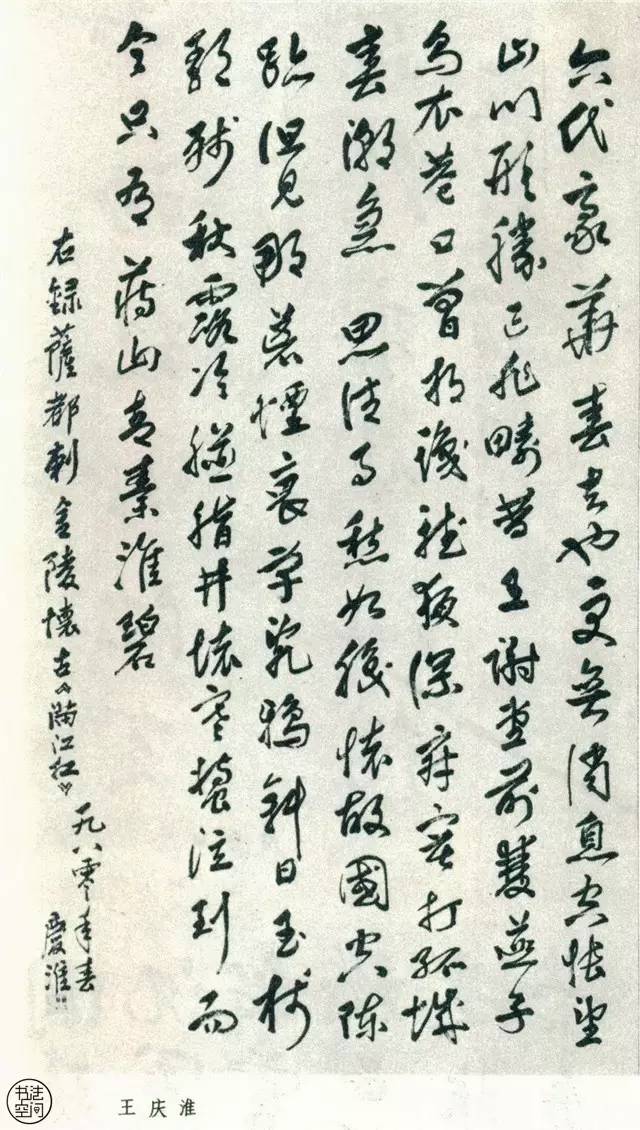 六代豪華春去也更無消息空悵望
山川形勝已非疇昔王謝堂前雙燕子
烏衣巷口曾相識聽夜深寂寞打孤城
春潮急 思往事愁如織懷故國空陳
跡但見那荒煙衰草亂鴉斜日玉樹
歌殘秋露冷臙脂井壞寒螿泣到而
今只有蔣山青秦淮碧
右録薩都刺金陵懷古《滿江紅》
一九八零年春
慶淮
王庆淮
书法空间